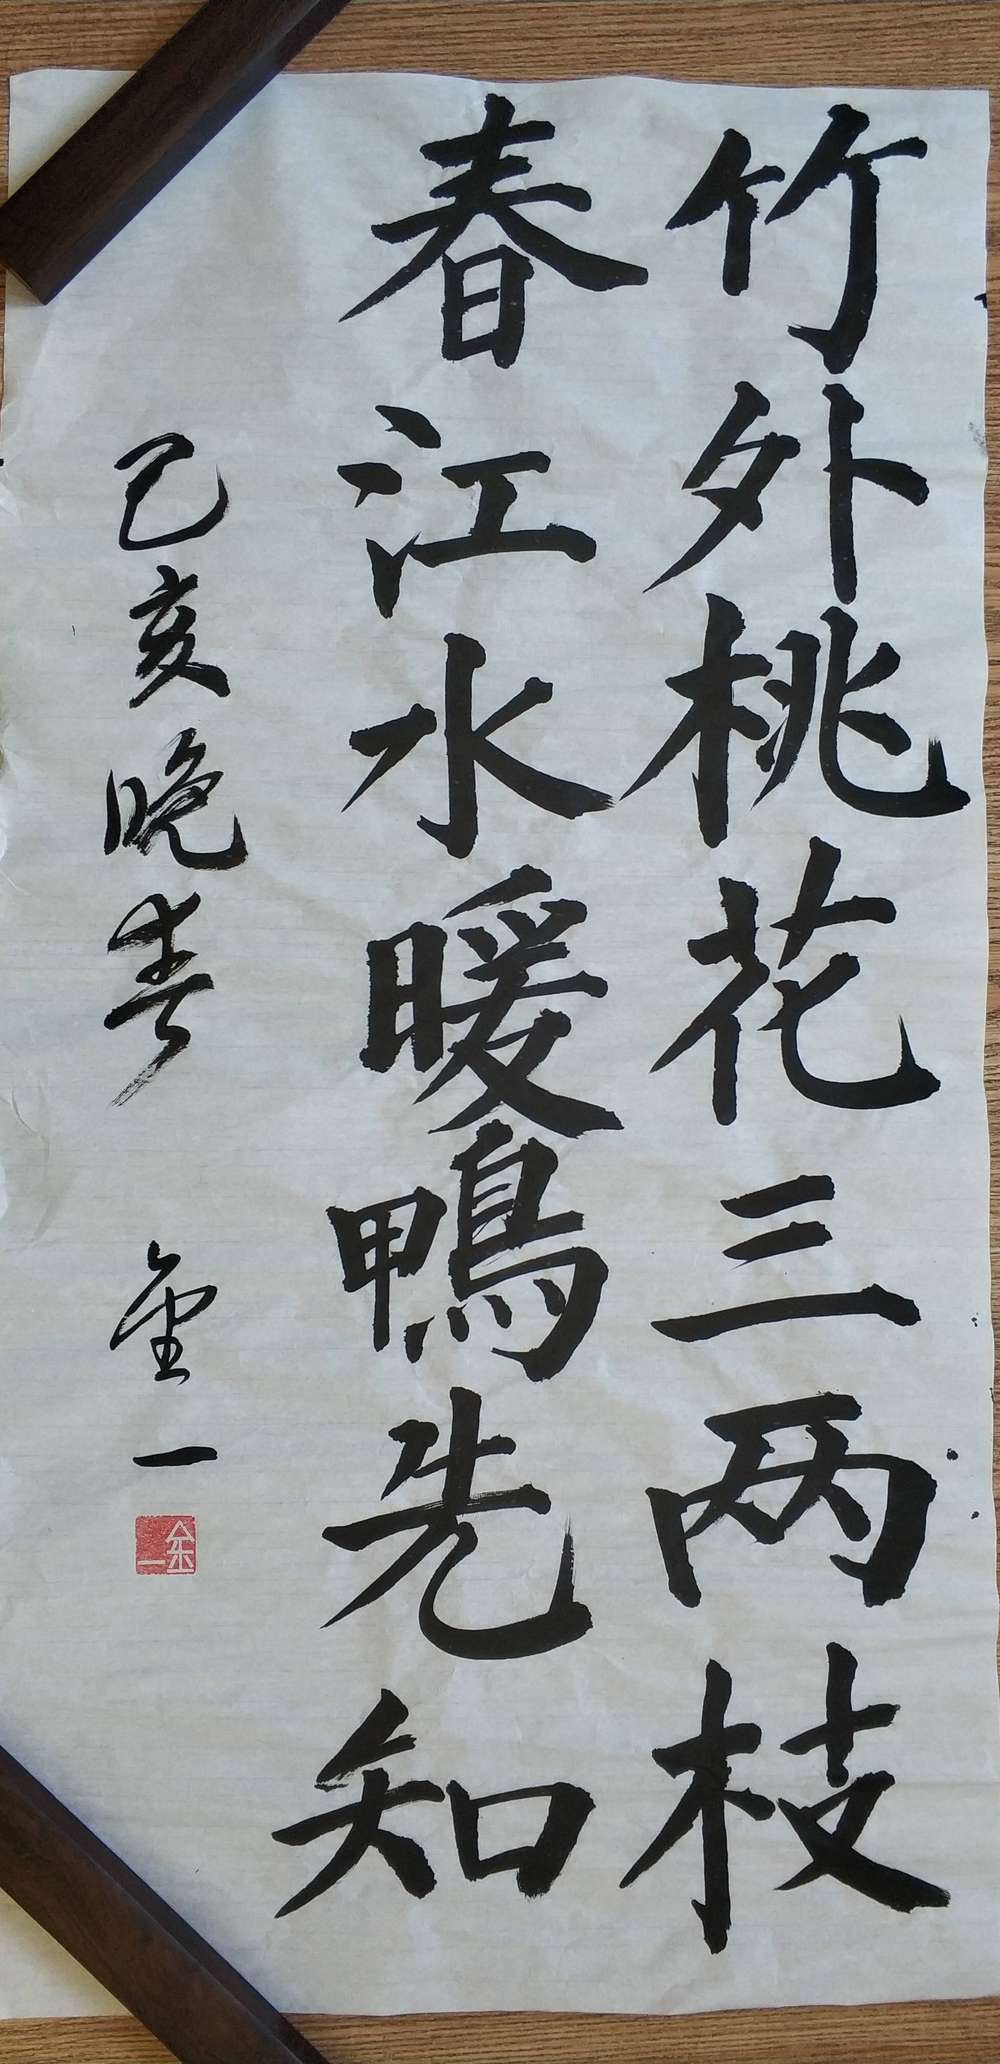 竹外桃花三两枝
春江水暖鴨先知
己亥晚春 金一
金一